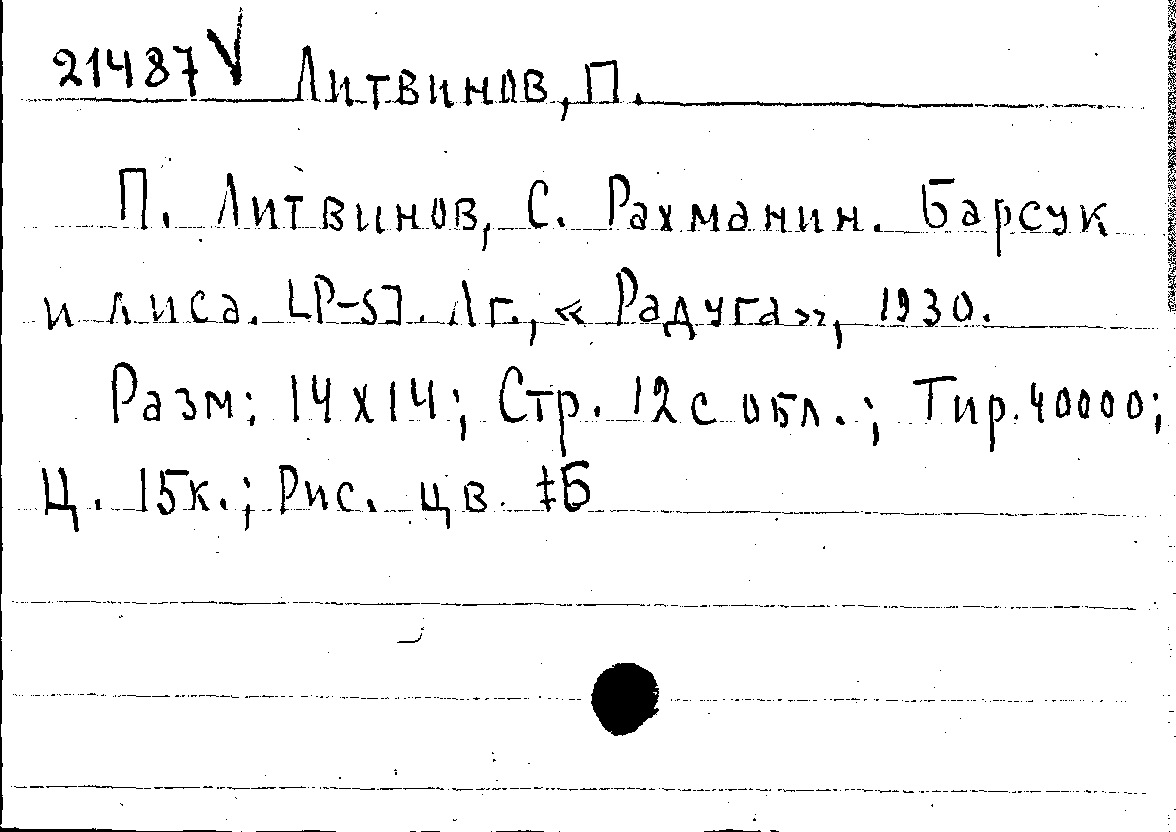 21487 V Литвинов, П.
П. Литвинов, С. Рахманин. Барсук
и лиса. [P-S]. Лг., «Радуга», 1930.
Разм: 14x14; Стр. 12 с обл.; Тир. 40000;
Ц. 15к.; Рис. цв. ‡Б